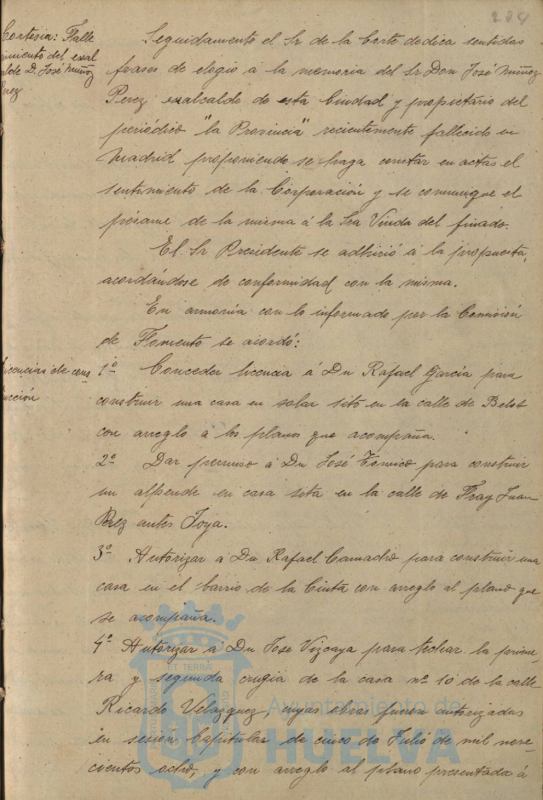 224
Cortesia: Falle
cimiento del exal
calde D. José Muñoz
Perez
Seguidamente el Sr de la Corte dedica sentidas
frases de elogio á la memoria del Sr Don José Muñoz
Perez exalcalde de esta Ciudad y propietario del
periódico "la Provincia" recientemente fallecido en
Madrid proponiendo se haga constar en actas el
sentimiento de la Corporación y se comunique el
pésame de la misma á la Sra Viuda del finado.
El Sr Presidente se adhirió á la propuesta,
acordándose de conformidad con la misma.
En armonía con lo informado por la Comisión
de Fomento se acordó:
Licencias de cons
trucción
1º Conceder licencia á Dn Rafael García para
construir una casa en solar sito en la calle de
con arreglo á los planos que acompaña.
2º Dar permiso á Dn José para construir
un alpende en casa sita en la calle de Fray Juan
Perez antes Joya.
3º Autorizar á Dn Rafael Camacho para construir una
casa en el barrio de la Cinta con arreglo al plano que
se acompaña.
4º Autorizar á Dn Jose Vizcaya para techar la prime-
ra y segunda crugia de la casa nº 10 de la calle
Ricardo Velazquez, cuyas obras fueron autorizadas
en sesión Capitular de cinco de Julio de mil nove-
cientos ocho, y con arreglo al plano presentado á
Ayuntamiento de
HUELVA